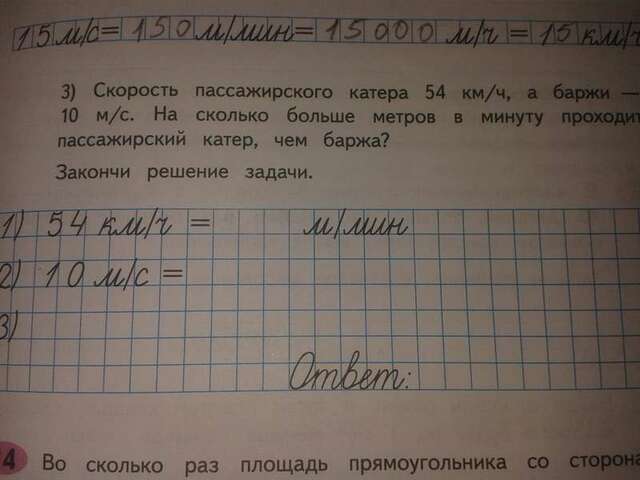 15 м/с = 150 м/мин = 15000 м/ч = 15 км/ч
3) Скорость пассажирского катера 54 км/ч, а баржи —
10 м/с. На сколько больше метров в минуту проходит
пассажирский катер, чем баржа?
Закончи решение задачи.
1) 54 км/ч = м/мин
2) 10 м/с =
3)
Ответ:
4 Во сколько раз площадь прямоугольника со сторона